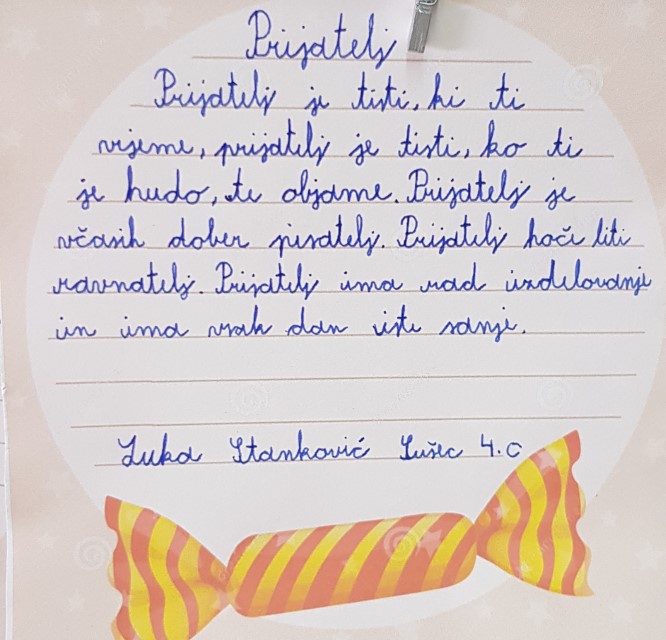 Prijatelj
Prijatelj je tisti, ki ti
vrjeme, prijatelj je tisti, ko ti
je hudo, te objame. Prijatelj je
včasih dober pisatelj. Prijatelj hoče biti
ravnatelj. Prijatelj ima rad izdelovanje
in ima vsak dan iste sanje.
Luka Stanković Sušec 4.c